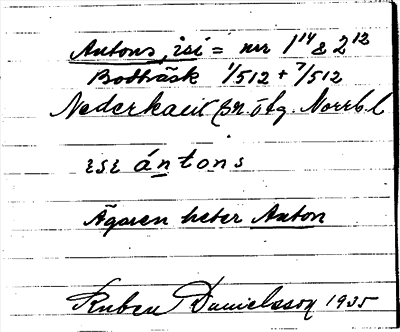 Antons, isi = nr 1¹⁴ & 2¹²
Bodträsk 1/512 + 7/512
Nederkalix sn. Norrb. l
isi ántons
Ägaren heter Anton
Ruben Danielsson 1935